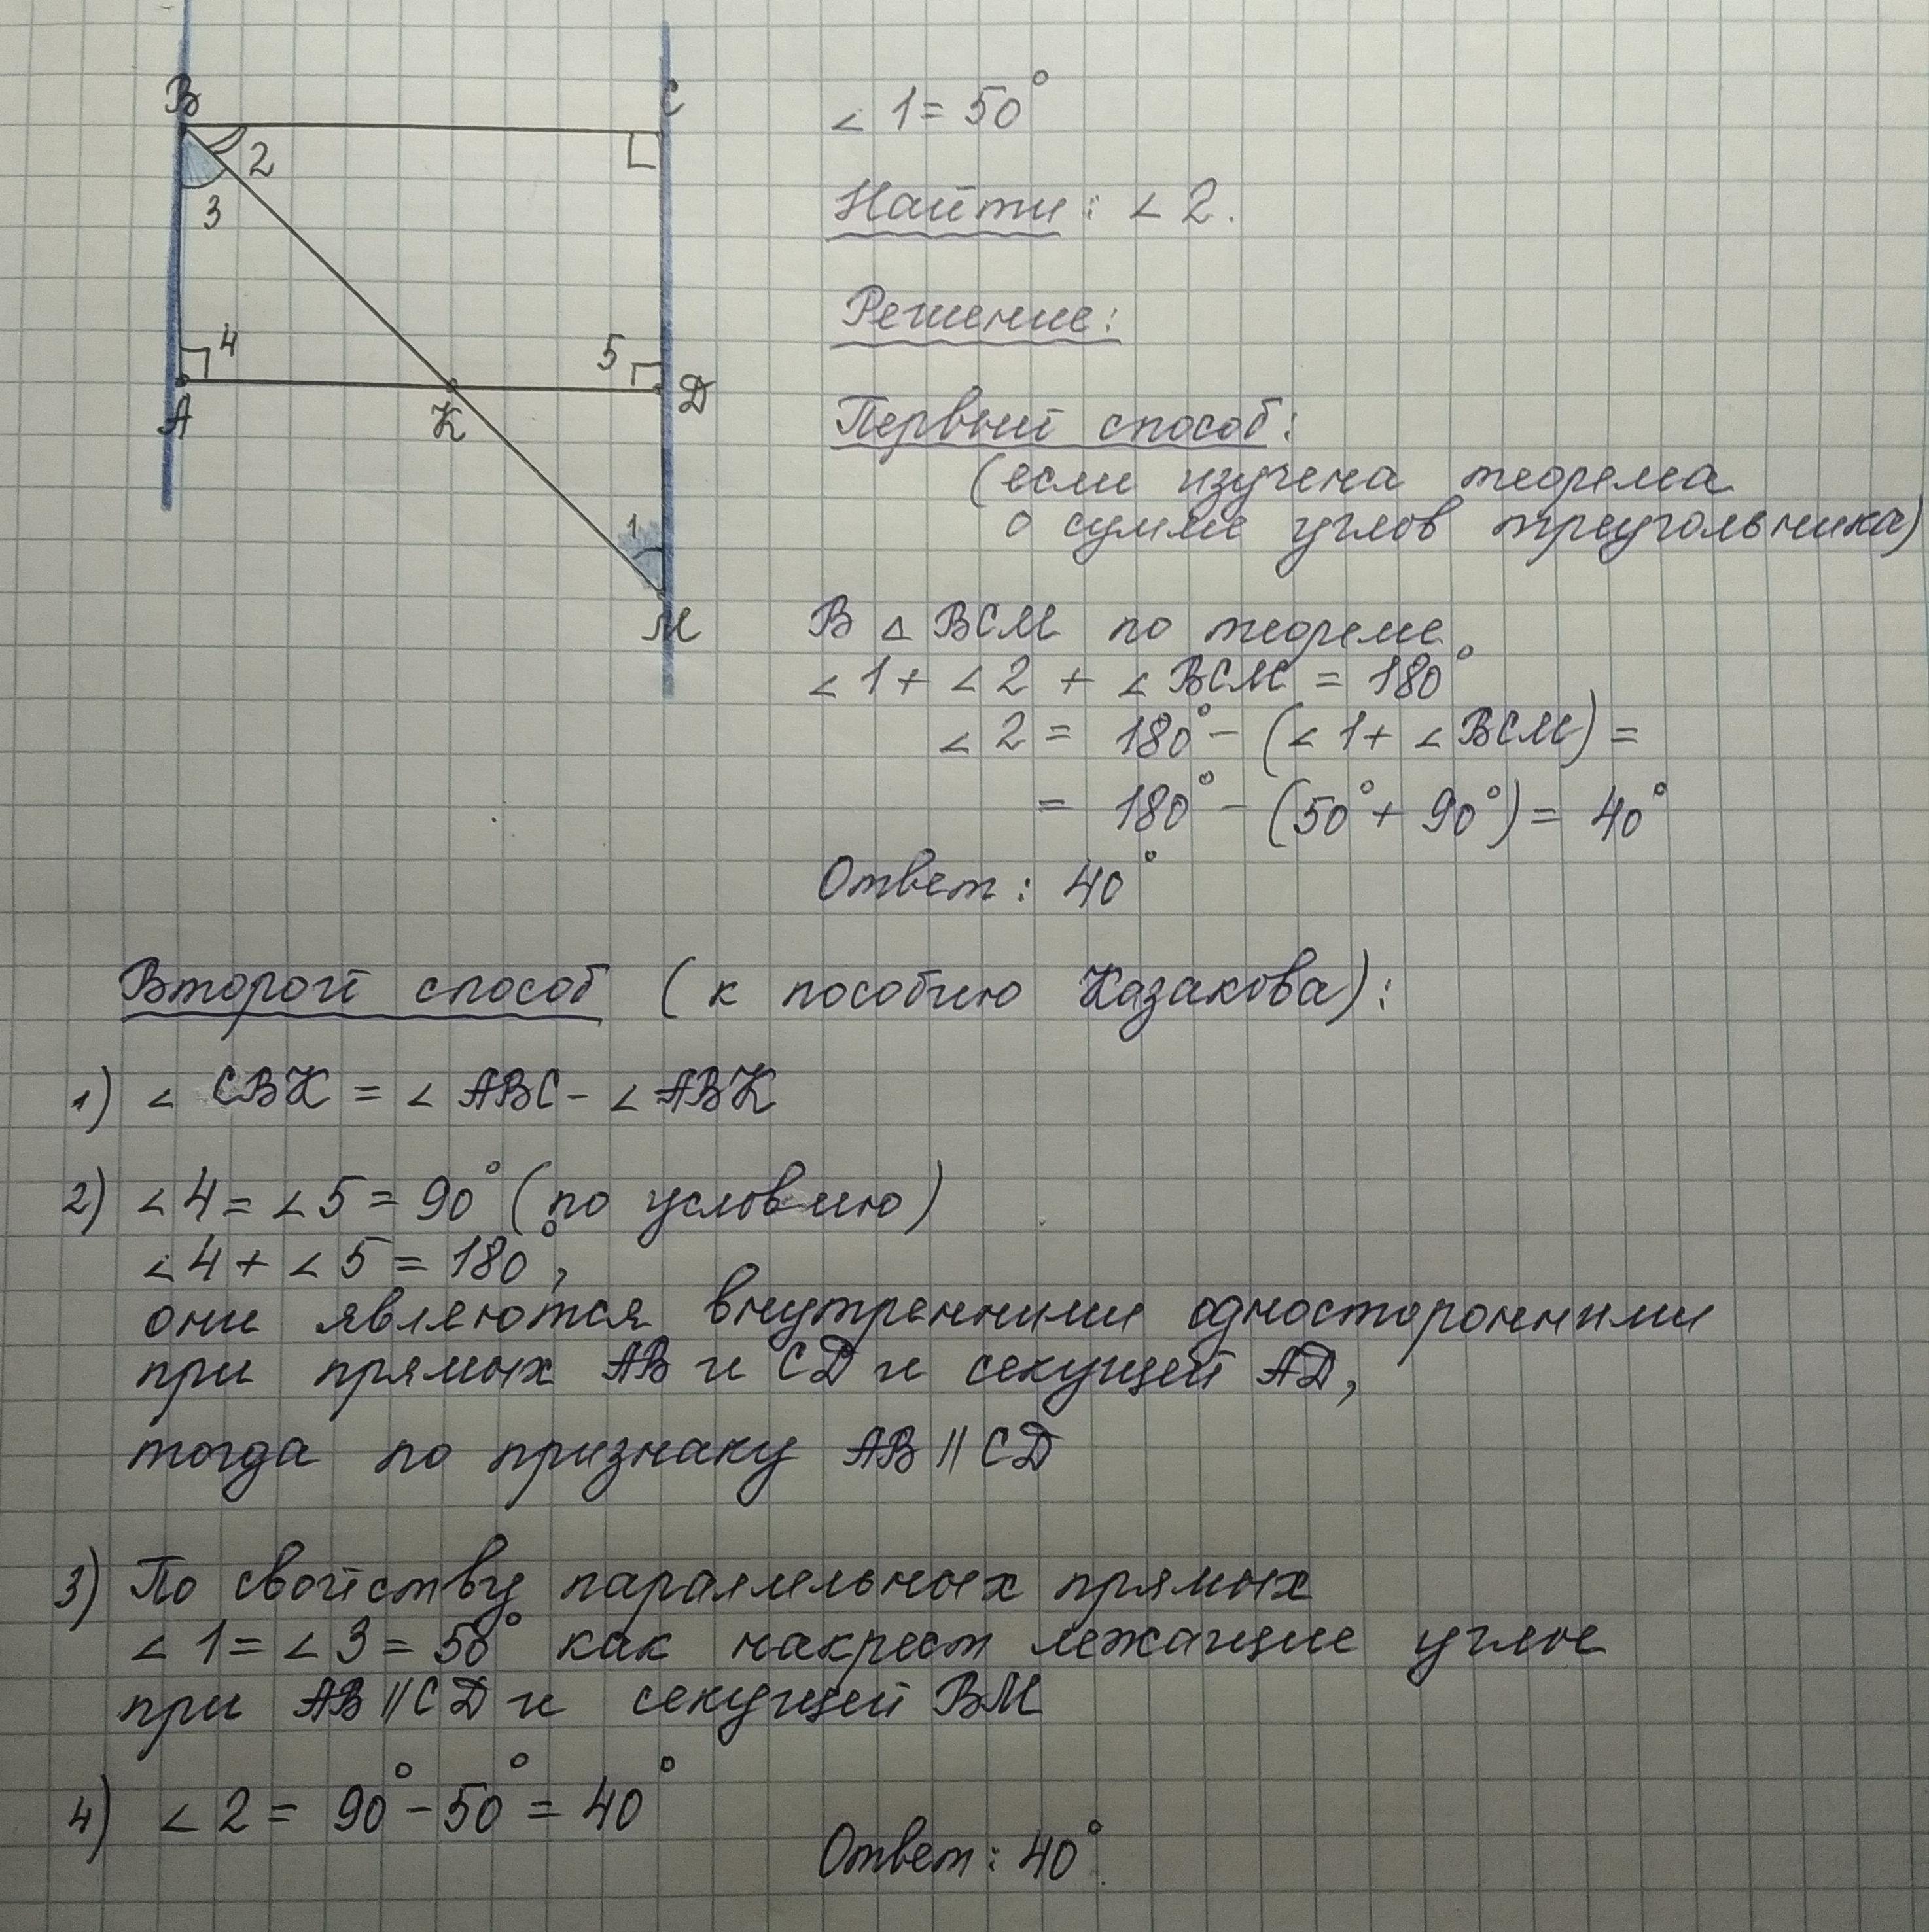 B
C
2
3
4
5
A
K
D
1
M
∠1 = 50°
Найти: ∠2.
Решение:
Первый способ:
(если изучена теорема
о сумме углов треугольника)
В △ BCM по теореме
∠1 + ∠2 + ∠BCM = 180°
∠2 = 180° - (∠1 + ∠BCM) =
= 180° - (50° + 90°) = 40°
Ответ: 40°
Второй способ (к пособию Казакова):
1) ∠CBK = ∠ABC - ∠ABK
2) ∠4 = ∠5 = 90° (по условию)
∠4 + ∠5 = 180°,
они являются внутренними односторонними
при прямых AB и CD и секущей AD,
тогда по признаку AB || CD
3) По свойству параллельных прямых
∠1 = ∠3 = 50° как накрест лежащие углы
при AB || CD и секущей BM
4) ∠2 = 90° - 50° = 40°
Ответ: 40°.